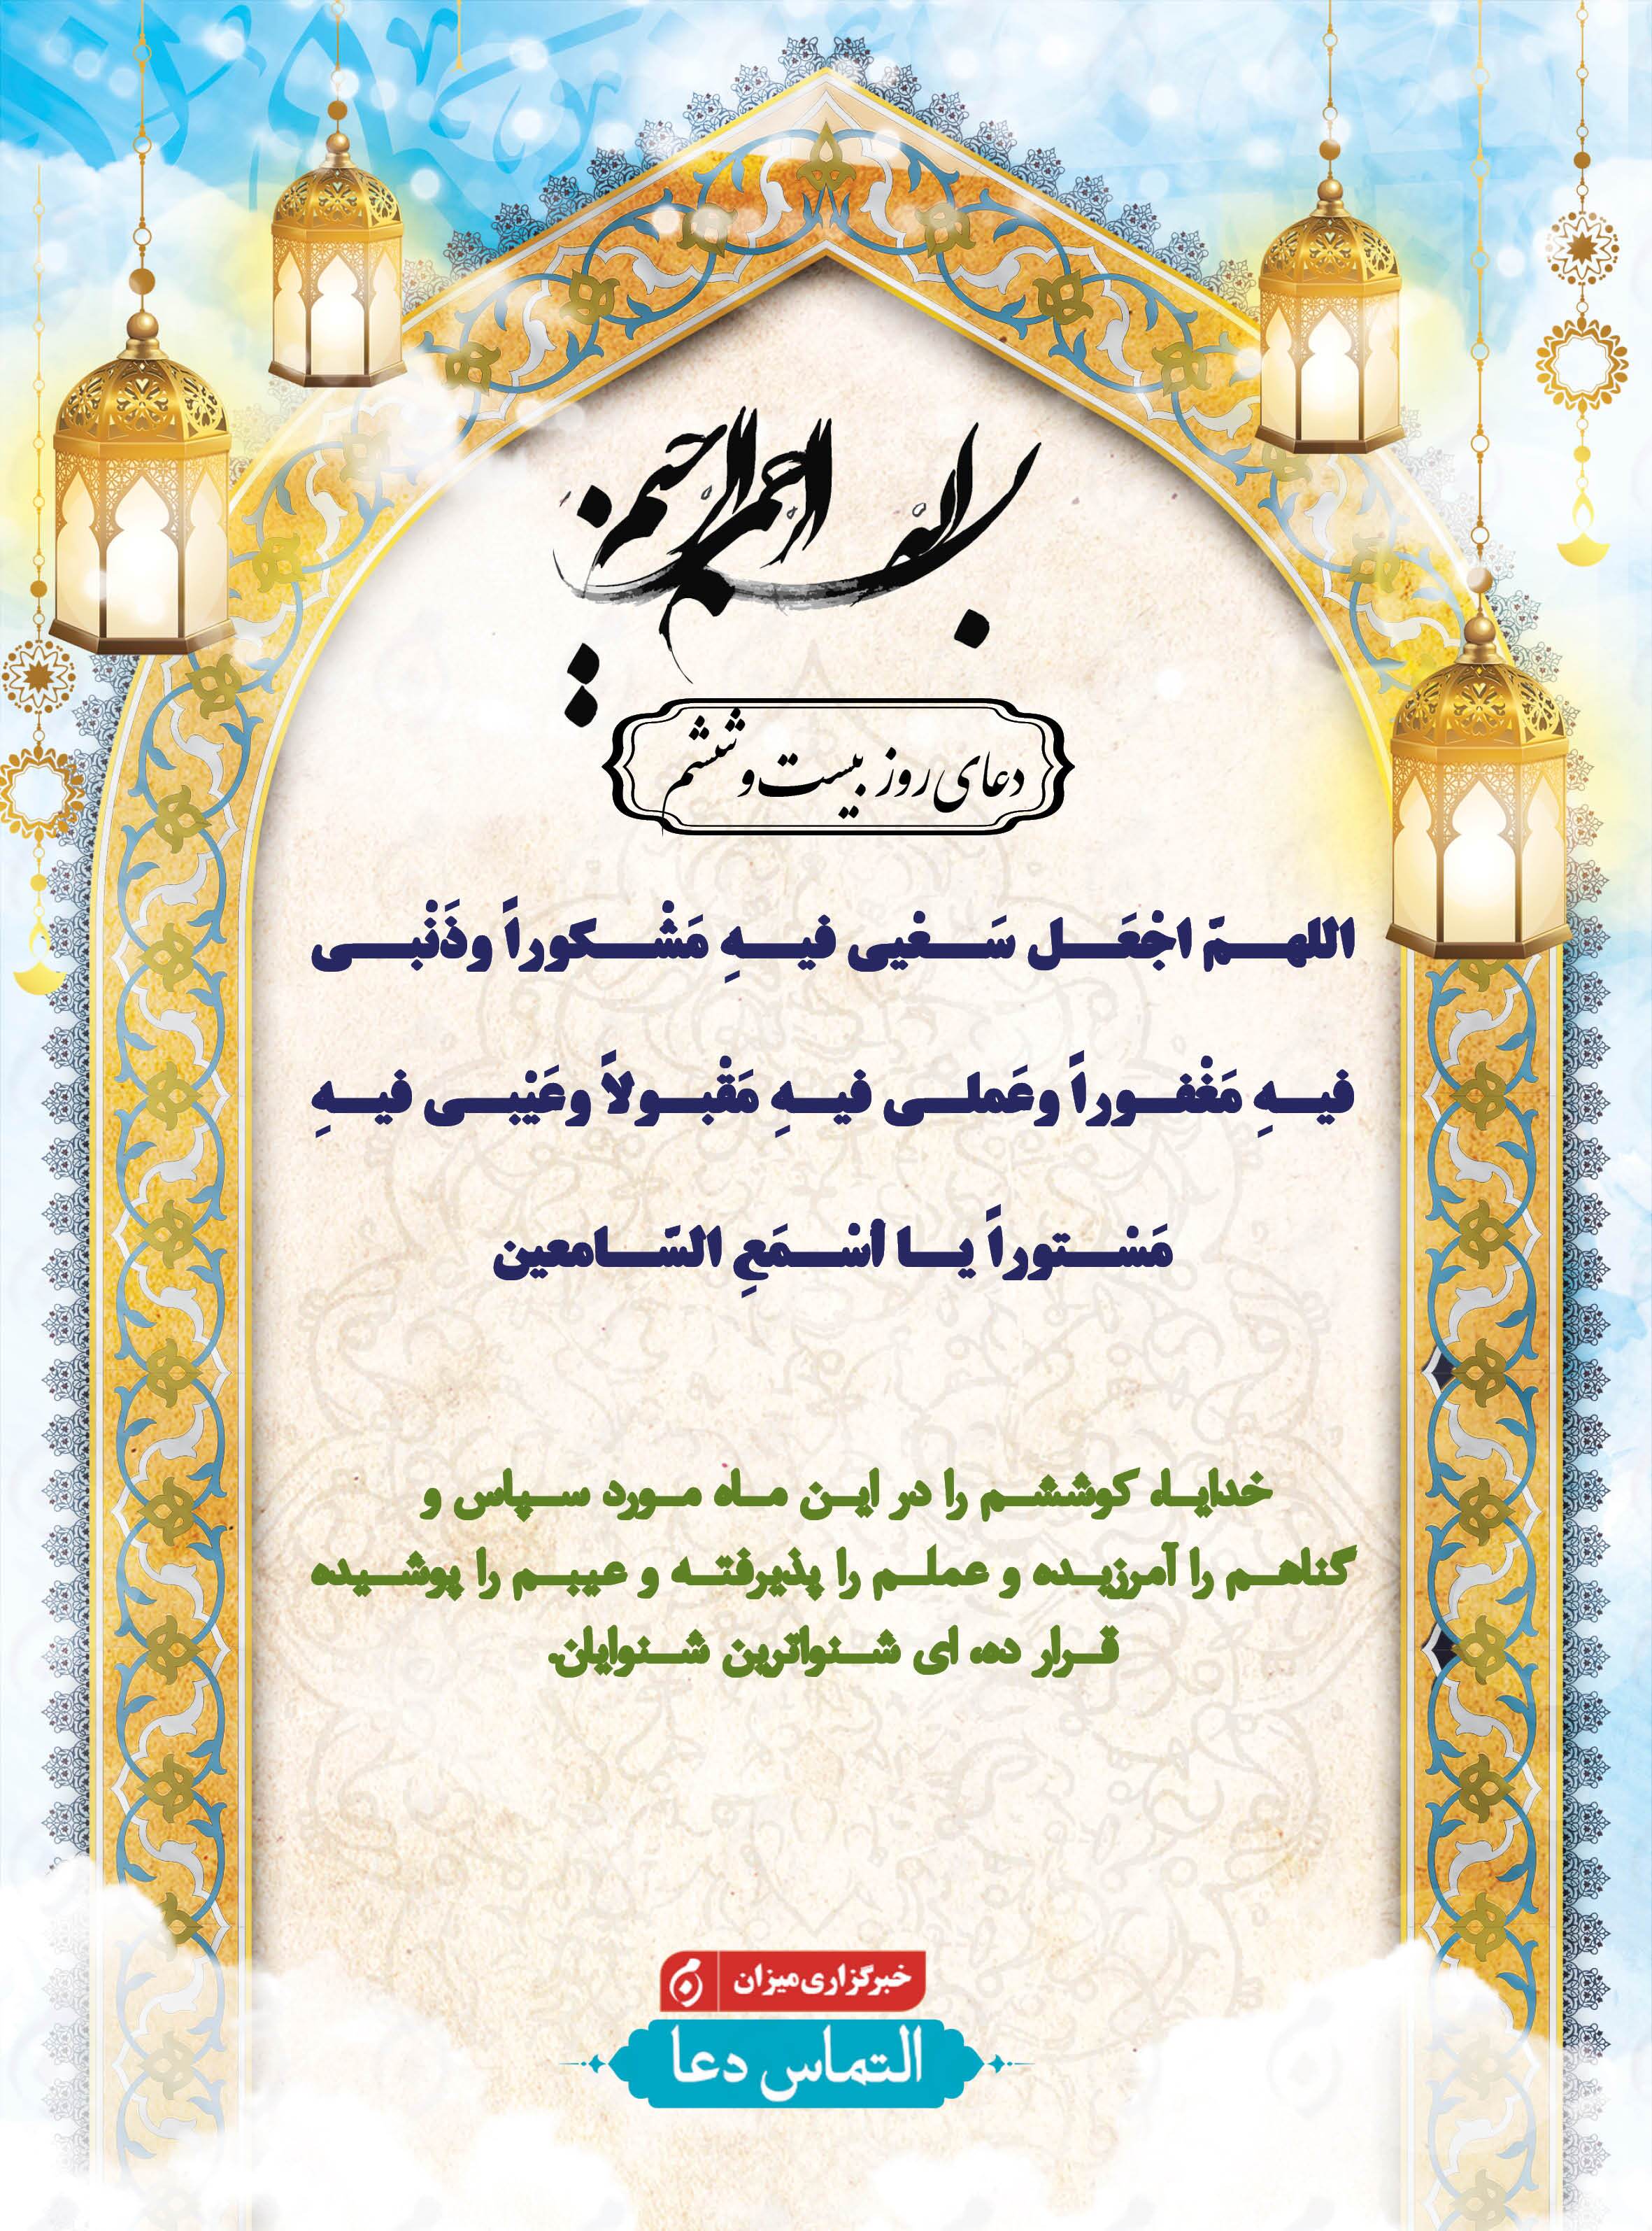 بسم الله الرحمن الرحیم
دعای روز بیست و ششم
اللهمّ اجْعَل سَعْیی فیهِ مَشْکوراً وذَنْبی
فیهِ مَغْفوراً وعَملی فیهِ مَقْبولاً وعَیْبی فیهِ
مَسْتوراً یا أسْمَعِ السّامعین
خدایا، کوششم را در این ماه مورد سپاس و
گناهم را آمرزیده و عملم را پذیرفته و عیبم را پوشیده
قرار ده، ای شنواترین شنوایان.
خبرگزاری میزان
التماس دعا